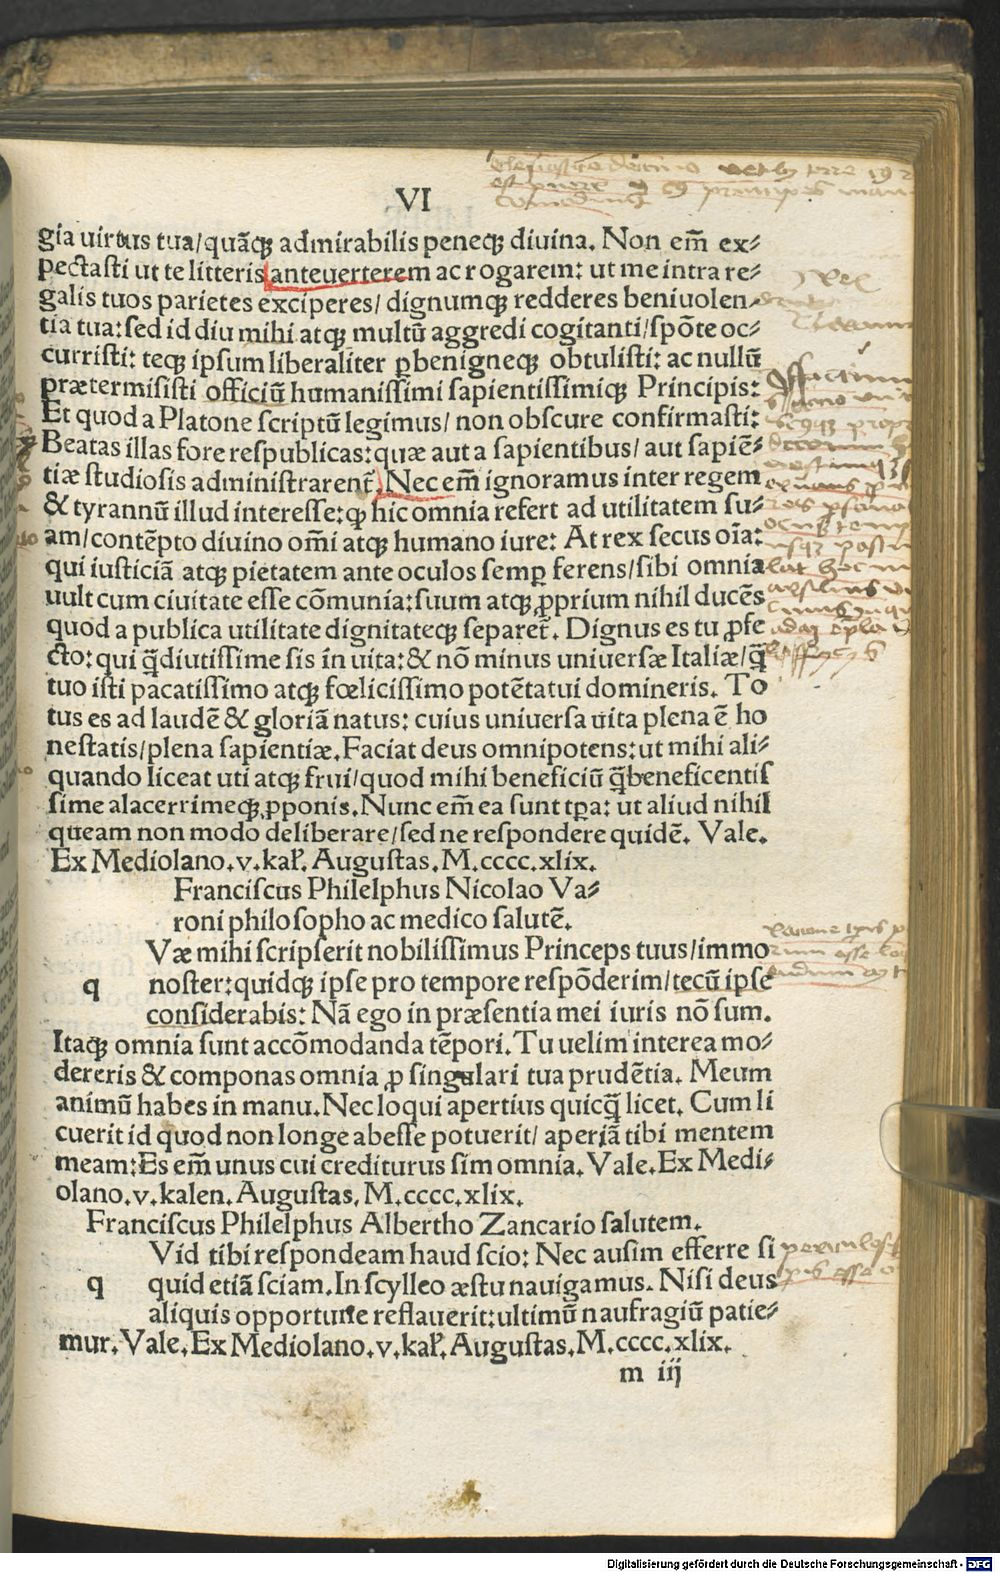 VI
gia uirtus tua/quãcꝙ admirabilis peneqꝫ diuina. Non em̃ ex⸗
pectasti ut te litteris anteuerterem ac rogarem: ut me intra re⸗
galis tuos parietes exciperes/ dignumqꝫ redderes beniuolen⸗
tia tua: sed id diu mihi atqꝫ multũ aggredi cogitanti/spõte oc⸗
curristi: teqꝫ ipsum liberaliter ꝑbenigneqꝫ obtulisti: ac nullũ
prætermisisti officiũ humanissimi sapientissimiqꝫ Principis:
Et quod a Platone scriptũ legimus/ non obscure confirmasti:
Beatas illas fore respublicas: quæ aut a sapientibus/ aut sapiẽ⸗
tiæ studiosis administrarent̃. Nec em̃ ignoramus inter regem
& tyrannũ illud interesse: ꝙ hic omnia refert ad utilitatem su⸗
am/contẽpto diuino om̃i atqꝫ humano iure: At rex secus oĩa:
qui iusticiã atqꝫ pietatem ante oculos semꝑ ferens/sibi omnia
uult cum ciuitate esse cõmunia: suum atqꝫ ꝓprium nihil ducẽs
quod a publica utilitate dignitateqꝫ separet̃. Dignus es tu ꝓfe
cto: qui q̃diutissime sis in uita: & nõ minus uniuersæ Italiæ/q̃
tuo isti pacatissimo atqꝫ fœlicissimo potẽtatui domineris. To
tus es ad laudẽ & gloriã natus: cuius uniuersa uita plena ẽ ho
nestatis/plena sapientiæ. Faciat deus omnipotens: ut mihi ali⸗
quando liceat uti atqꝫ frui/quod mihi beneficiũ q̃beneficentis
sime alacerrimeqꝫ ꝓponis. Nunc em̃ ea sunt tꝑa: ut aliud nihil
queam non modo deliberare/sed ne respondere quidẽ. Vale.
Ex Mediolano. v. kal̃. Augustas. M.cccc.xlix.
Franciscus Philelphus Nicolao Va⸗
roni philosopho ac medico salutẽ.
Væ mihi scripserit nobilissimus Princeps tuus/immo
q noster: quidqꝫ ipse pro tempore respõderim/tecũ ipse
considerabis: Nã ego in præsentia mei iuris nõ sum.
Itaqꝫ omnia sunt accõmodanda tẽpori. Tu uelim interea mo⸗
dereris & componas omnia ꝓ singulari tua prudẽtia. Meum
animũ habes in manu. Nec loqui apertius quicq̃ licet. Cum li
cuerit id quod non longe abesse potuerit/ aperiã tibi mentem
meam: Es em̃ unus cui crediturus sim omnia. Vale. Ex Medi⸗
olano. v. kalen. Augustas. M.cccc.xlix.
Franciscus Philelphus Albertho Zancario salutem.
Vid tibi respondeam haud scio: Nec ausim efferre si
q quid etiã sciam. In scylleo æstu nauigamus. Nisi deus
aliquis opportune reflauerit: ultimũ naufragiũ patie⸗
mur. Vale. Ex Mediolano. v. kal̃. Augustas. M.cccc.xlix.
m iij
Digitalisierung gefördert durch die Deutsche Forschungsgemeinschaft - DFG